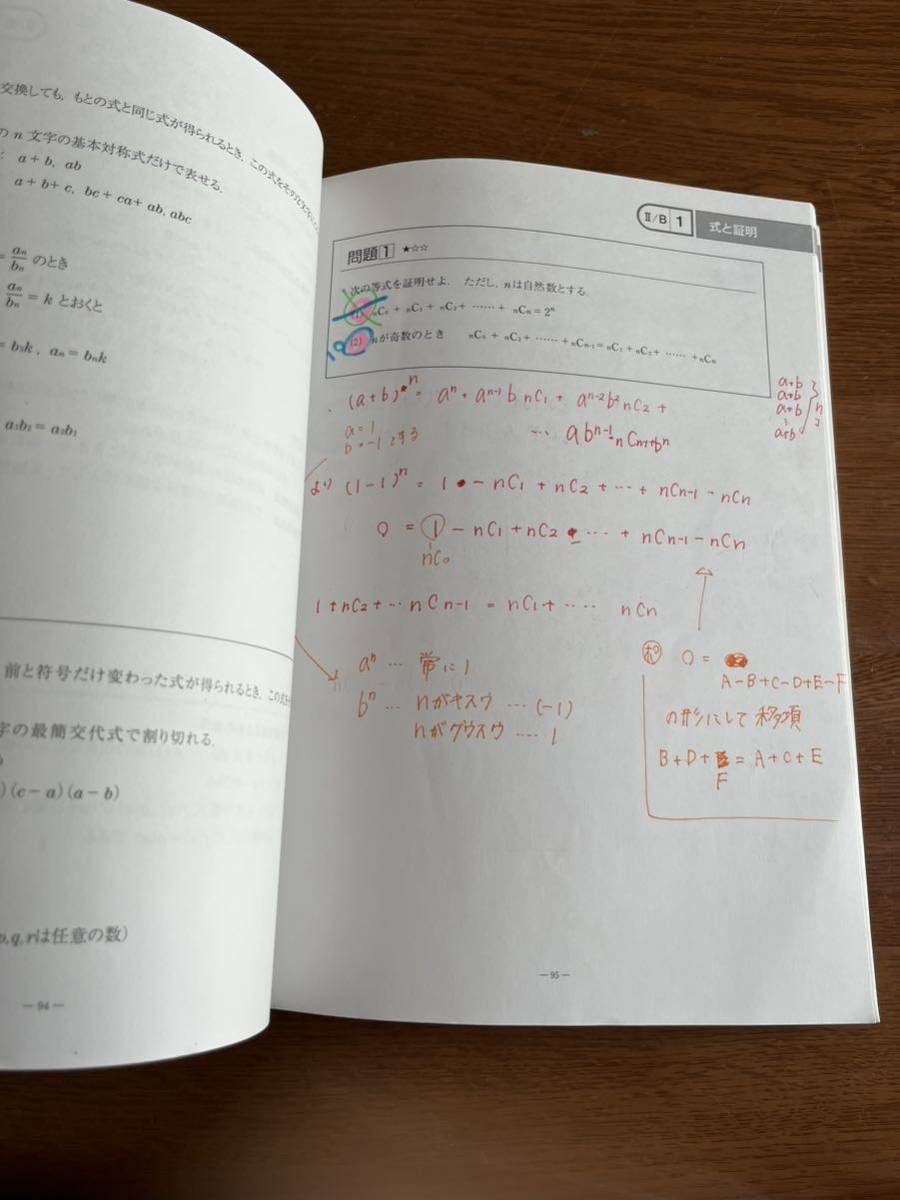 交換しても，もとの式と同じ式が得られるとき，この式を
の n 文字の基本対称式だけで表せる．
: a + b, ab
a + b + c, bc + ca + ab, abc
= an/bn のとき
an/bn = k とおくと
= b3k , an = bnk
a1b2 = a2b1
前と符号だけ変わった式が得られるとき，この式を
字の最簡交代式で割り切れる．
)(c − a)(a − b)
p,q,rは任意の数)
— 94 —
Ⅱ/B 1 式と証明
問題 1 ★☆☆
次の等式を証明せよ．ただし，nは自然数とする．
(1) nC0 + nC1 + nC2 + …… + nCn = 2ⁿ
(2) nが奇数のとき nC0 + nC2 + …… + nCn-1 = nC1 + nC3 + …… + nCn
(a+b)ⁿ = aⁿ + aⁿ⁻¹b nC1 + aⁿ⁻²b² nC2 +
… abⁿ⁻¹ nCn-1 + bⁿ
a+b
a+b
a+b
a+b
n
a = 1
b = -1 とする
より (1-1)ⁿ = 1 - nC1 + nC2 + … + nCn-1 - nCn
0 = 1 - nC1 + nC2 - … + nCn-1 - nCn
nC0
1 + nC2 + … nCn-1 = nC1 + …. nCn
aⁿ … 常に 1
bⁿ … nがキスウ … (-1)
nがグウスウ …. 1
ポ 0 =
A-B+C-D+E-F
の形にして移項
B+D+F = A+C+E
— 95 —